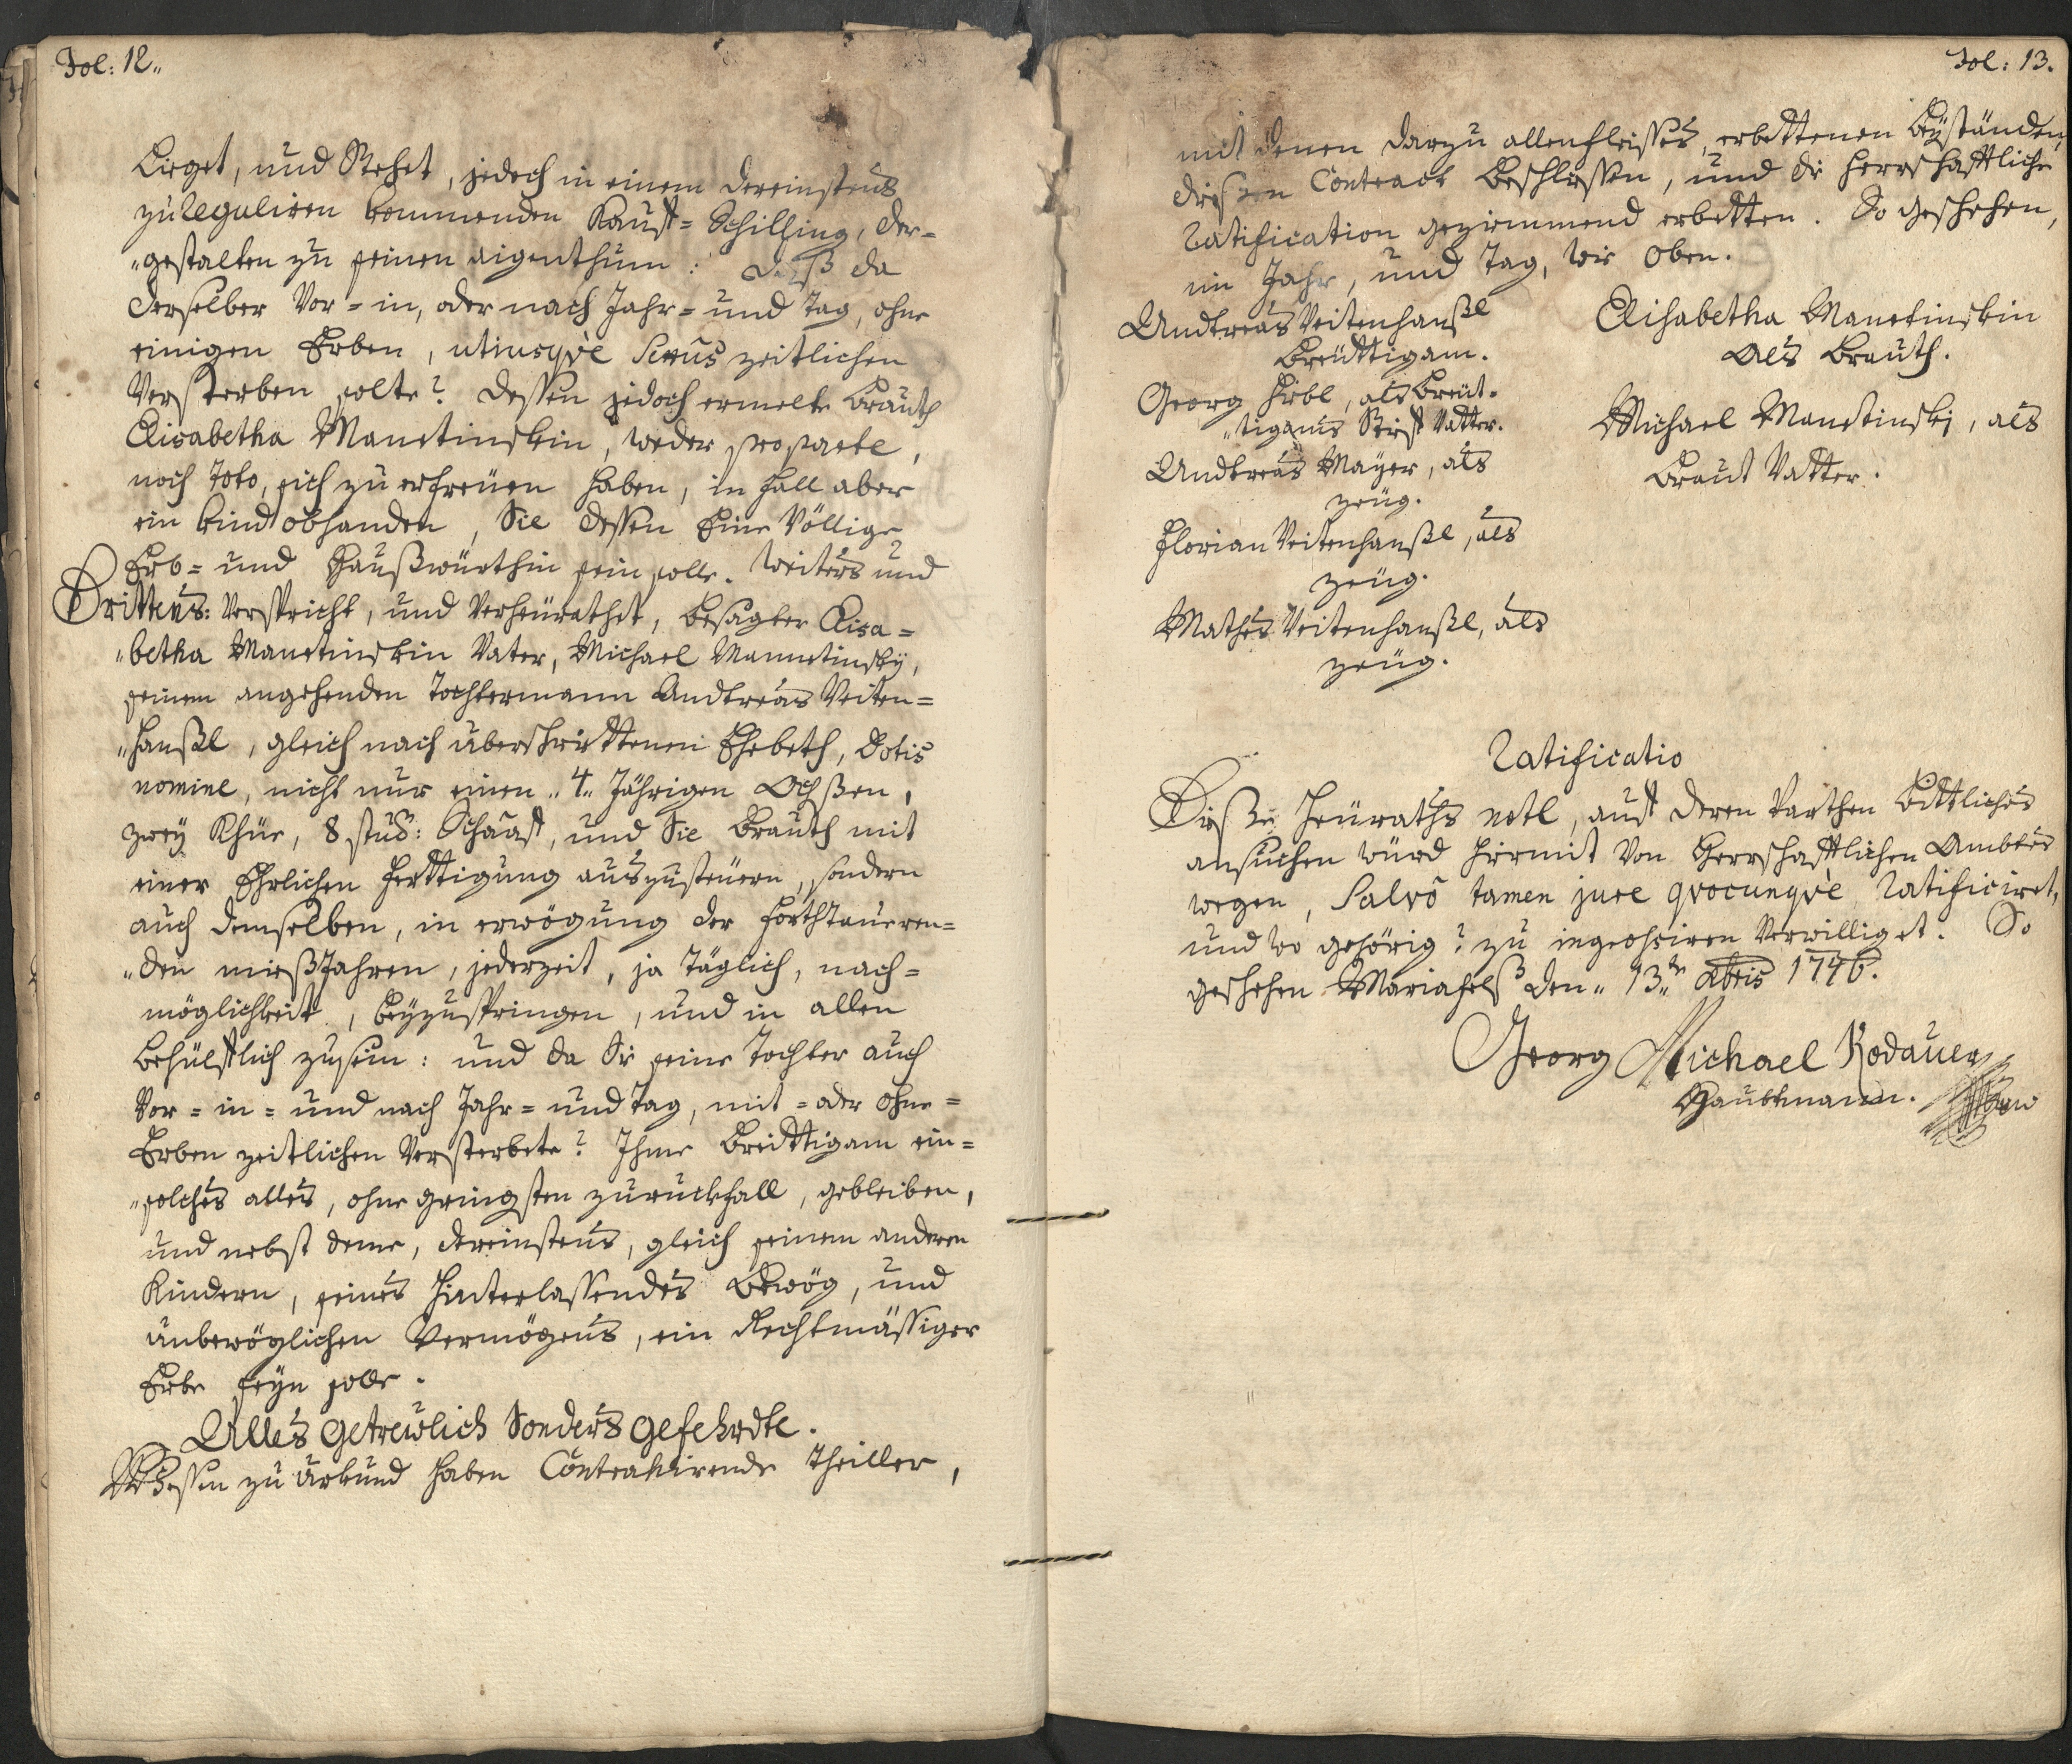 Fol: 12.
Lieget, und Stehet, jedoch in einem dereinstens
zu reguliren kommenden Kauff=Schilling, der=
"gestalten zu seinen aigenthum: daß da
derselber Vor=in, oder nach Jahr= und Tag, ohne
einigen Erben, utiusqvè Sexus zeitlichen
Versterben solte? dessen jedoch ermelte Brauth
Elisabetha Manetinskin, weder pro parte,
noch Toto, sich zu erfreüen haben, in fall aber
ein kind obhanden, Sie dessen Eine Völlige
Erb= und Haußwürthin sein solle. Weiters und
Drittens: Verspricht, und Verheürathet, besagter Elisa=
"betha Manetinskin Vater, Michael Mannetinsky,
seinem angehenden Tochtermann Andreas Veiten=
"hanßl, gleich nach überschrittenen Ehebeth, Dotis
nomine, nicht nur einen "4" Jährigen Ochßen,
zwey Khüe, 8 stuck: Schaaff, und Sie Brauth mit
einer Ehrlichen Ferttigung auszusteüern, sondern
auch demselben, in erwögung der forthtaueren=
"den mießJahren, jederzeit, ja Täglich, nach=
möglichkeit, beyzuspringen, und in allen
behülfflich zu sein: und da Sie seine Tochter auch
Vor=in= und nach Jahr= und Tag, mit= oder ohne=
Erben zeitlichen Versterbete? Ihme Breittigam ein=
"solches alles, ohne gringsten zuruckfall, gebleiben,
und nebst deme, dereinstens, gleich seinem anderen
Kindern, seines Hinterlassendes Bewög, und
unbewöglichen Vermögens, ein Rechtmässiger
Erbe seyn solle.
Alles getreülich Sonders gefehrdte.
Wessen zu Urkund haben Contrahirende Theiller,
Fol: 13.
mit denen darzu allenfleisses, erbettenen Beyständen,
dießen Contract beschlossen, und die Herrschafftliche
Ratification gezimmend erbetten. So geschehen,
im Jahr, und Tag, wie oben.
Andreas Veitenhanßl
Breüttigam.
Georg Hübl, als Breüt=
"tigams Stief Vatter.
Andreas Mayer, als
zeüg.
Florian Veitenhanßl, als
zeüg.
Mathes Veitenhanßl, als
zeüg.
Elisabetha Manetinskin
Als Brauth.
Michael Manetinski, als
Braut Vatter.
Ratificatio
Dieße Heüraths notl, auff deren Parthen Bittliches
ansuchen würd hiermit Von Herrschafftlichen Ambts
wegen, Salvo tamen jure qvocunqvè, Ratificiret,
und wo gehörig? zu ingrossiren Verwilliget. So
geschehen Mariafels den "13.te Xbris 1746.
Georg Michael Rodauer
Haubtmann.